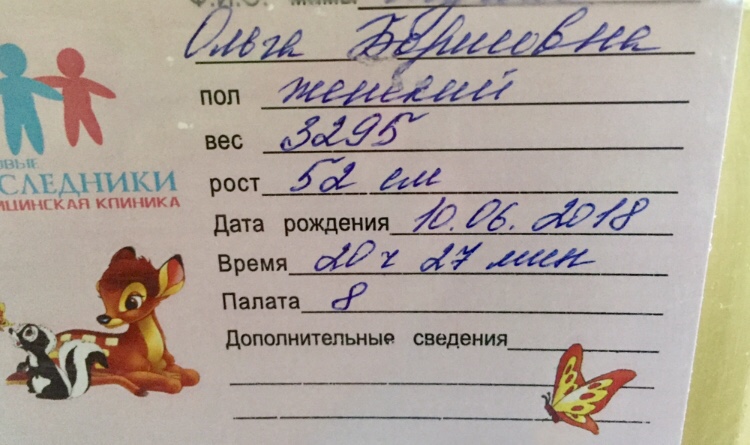 Ф.И.О. мамы
Ольга Борисовна
пол женский
вес 3295
рост 52 см
Дата рождения 10.06.2018
Время 20 ч 27 мин
Палата 8
Дополнительные сведения
СЛЕДНИКИ
ИЦИНСКАЯ КЛИНИКА